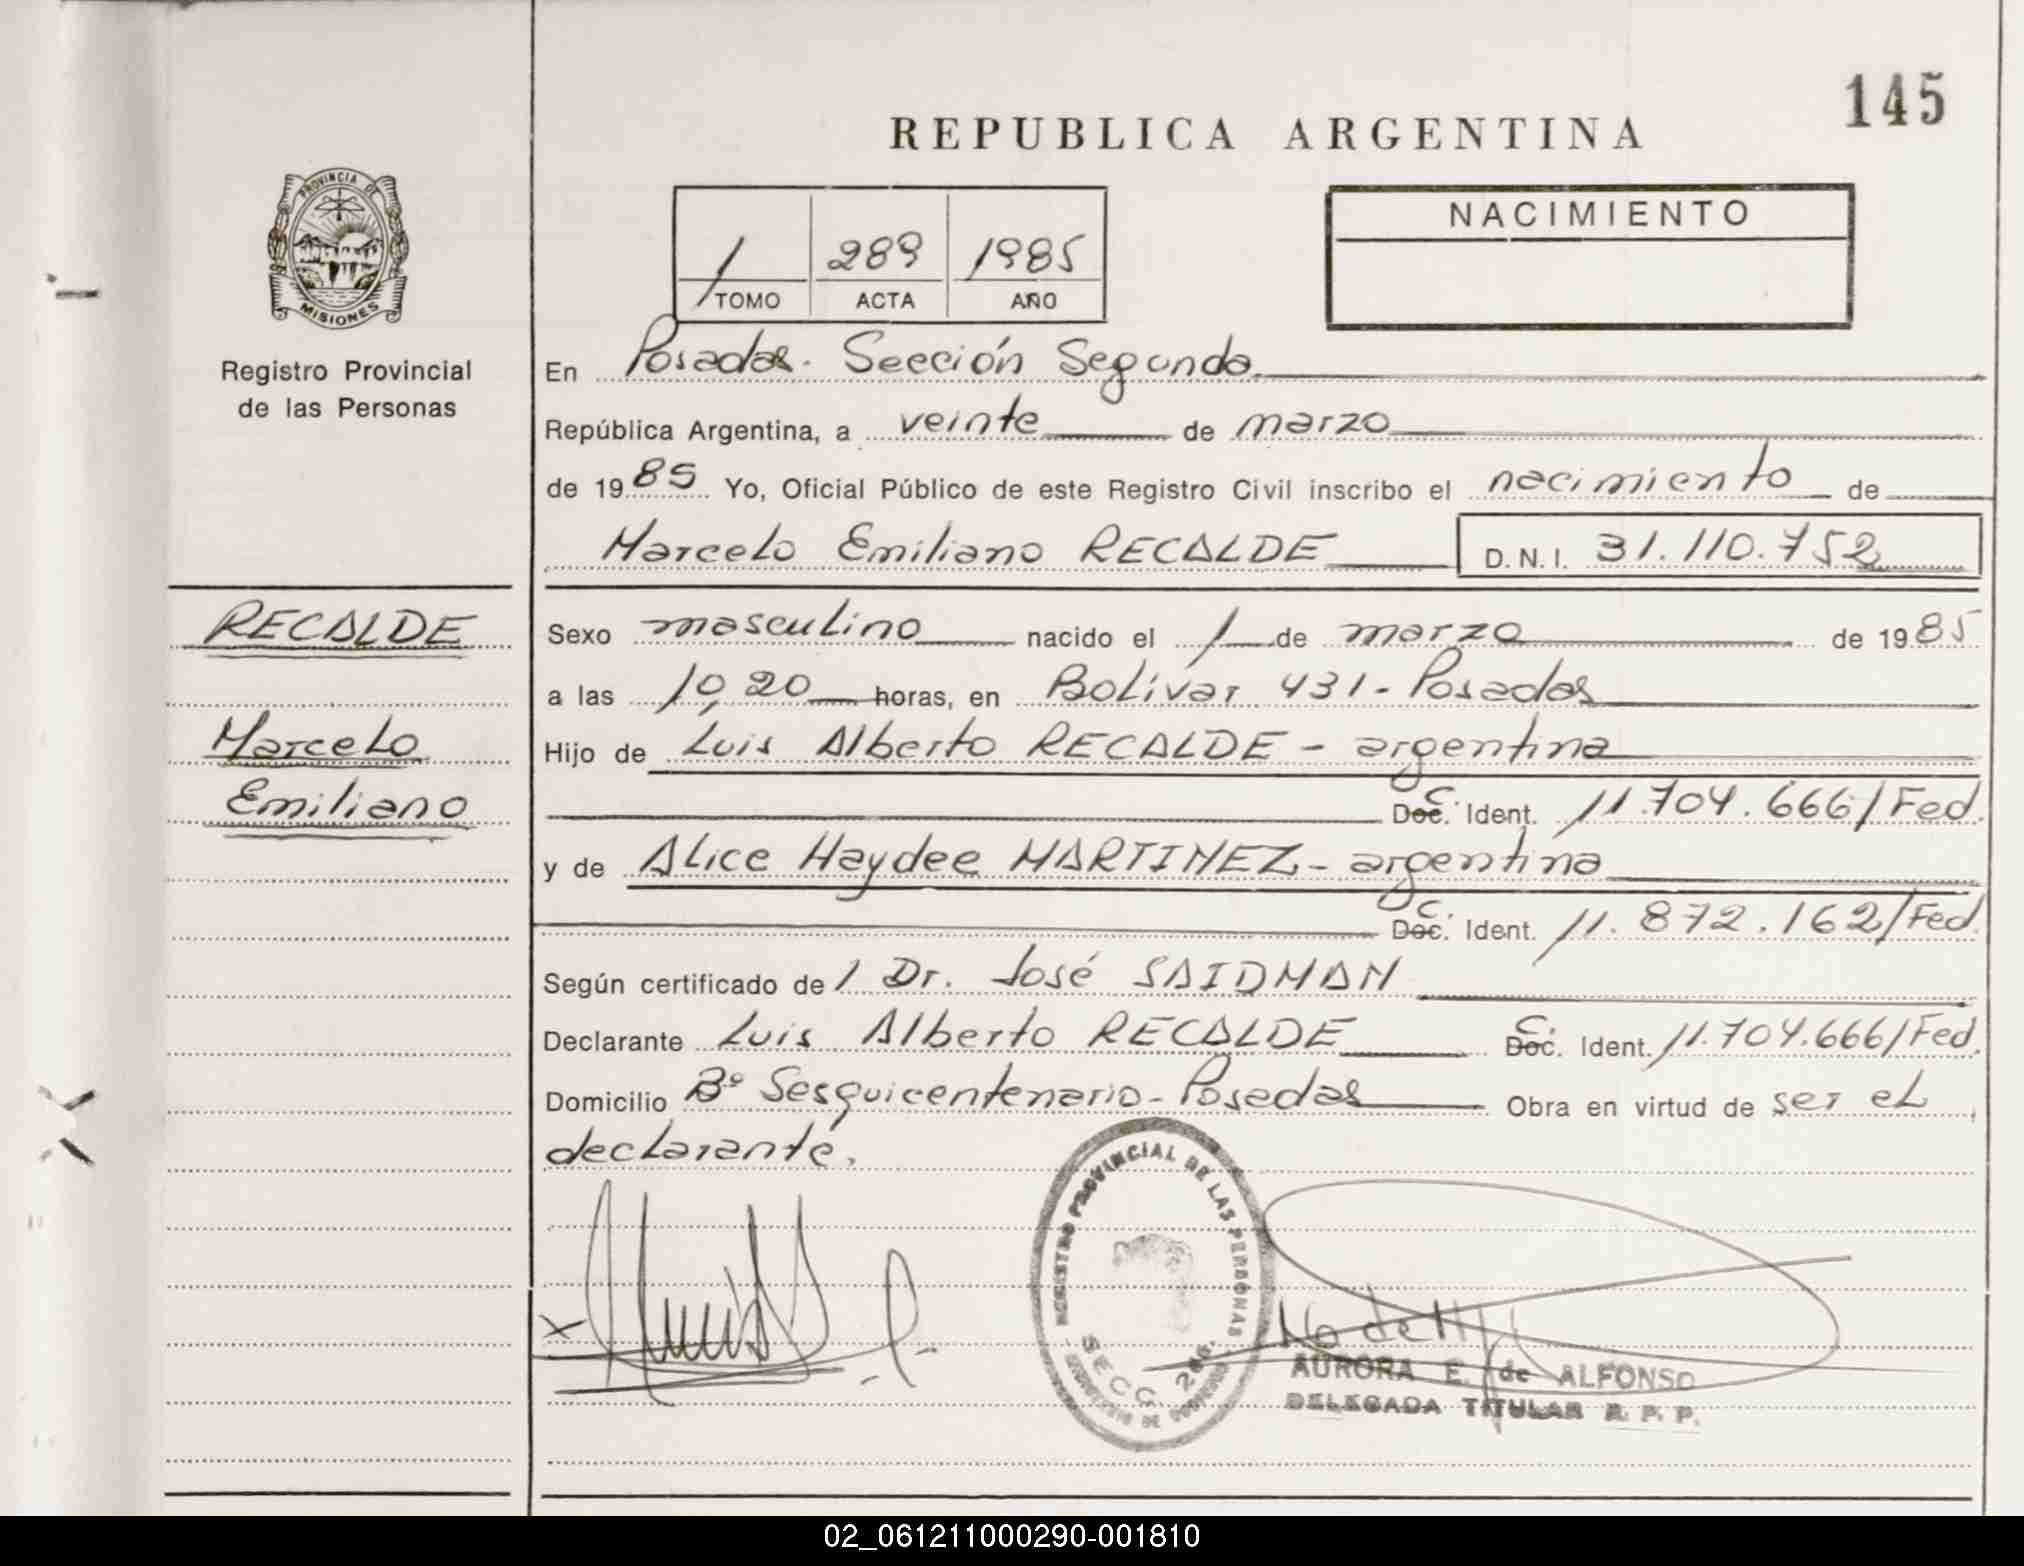 145
REPUBLICA ARGENTINA
PROVINCIA DE
MISIONES
Registro Provincial
de las Personas
1 289 1985
TOMO ACTA AÑO
NACIMIENTO
En Posadas. Sección Segunda
República Argentina, a veinte de marzo
de 1985 Yo, Oficial Público de este Registro Civil inscribo el nacimiento de
Marcelo Emiliano RECALDE D.N.I. 31.110.752
RECALDE
Marcelo
Emiliano
Sexo masculino nacido el 1 de marzo de 1985
a las 10,20 horas, en Bolívar 431 - Posadas
Hijo de Luis Alberto RECALDE - argentina
Doc. C. Ident. 11.704.666/Fed.
y de Alice Haydee MARTINEZ - argentina
Doc. C. Ident. 11.872.162/Fed.
Según certificado de / Dr. José SAIDMAN
Declarante Luis Alberto RECALDE Doc. C. Ident. 11.704.666/Fed.
Domicilio Bº Sesquicentenario - Posadas Obra en virtud de ser el
declarante.
REGISTRO PROVINCIAL DE LAS PERSONAS
SECC. 2da.
AURORA E. de ALFONSO
DELEGADA TITULAR R. P. P.
02_061211000290-001810